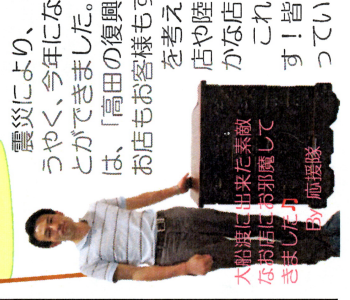 震災により、
うやく、今年にな
とができました。
は、「高田の復興
お店もお客様もす
を考え
店や陸
かな店
これ
す！皆
ってい
大船渡に出来た素敵
なお店にお邪魔して
きました♪
By 応援隊